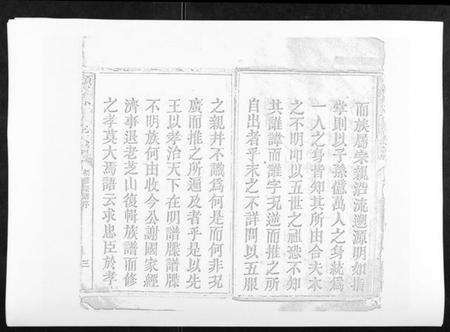 而族屬宗親溯流遡源明如指
掌則以子孫億萬人之身統爲
一人之身皆知其所由合夫木
之不明卽以五世之祖恐不知
其諱諱而離字況遠而推之所
自出者乎末之不詳問以五服
之親并不識爲何是而何非况
廣而推之所通及者乎是以先
王以孝治天下在明譜牒譜牒
不明族何由收今公謝國家經
濟事退老芝山復輯族譜而修
之孝莫大焉語云求忠臣於孝